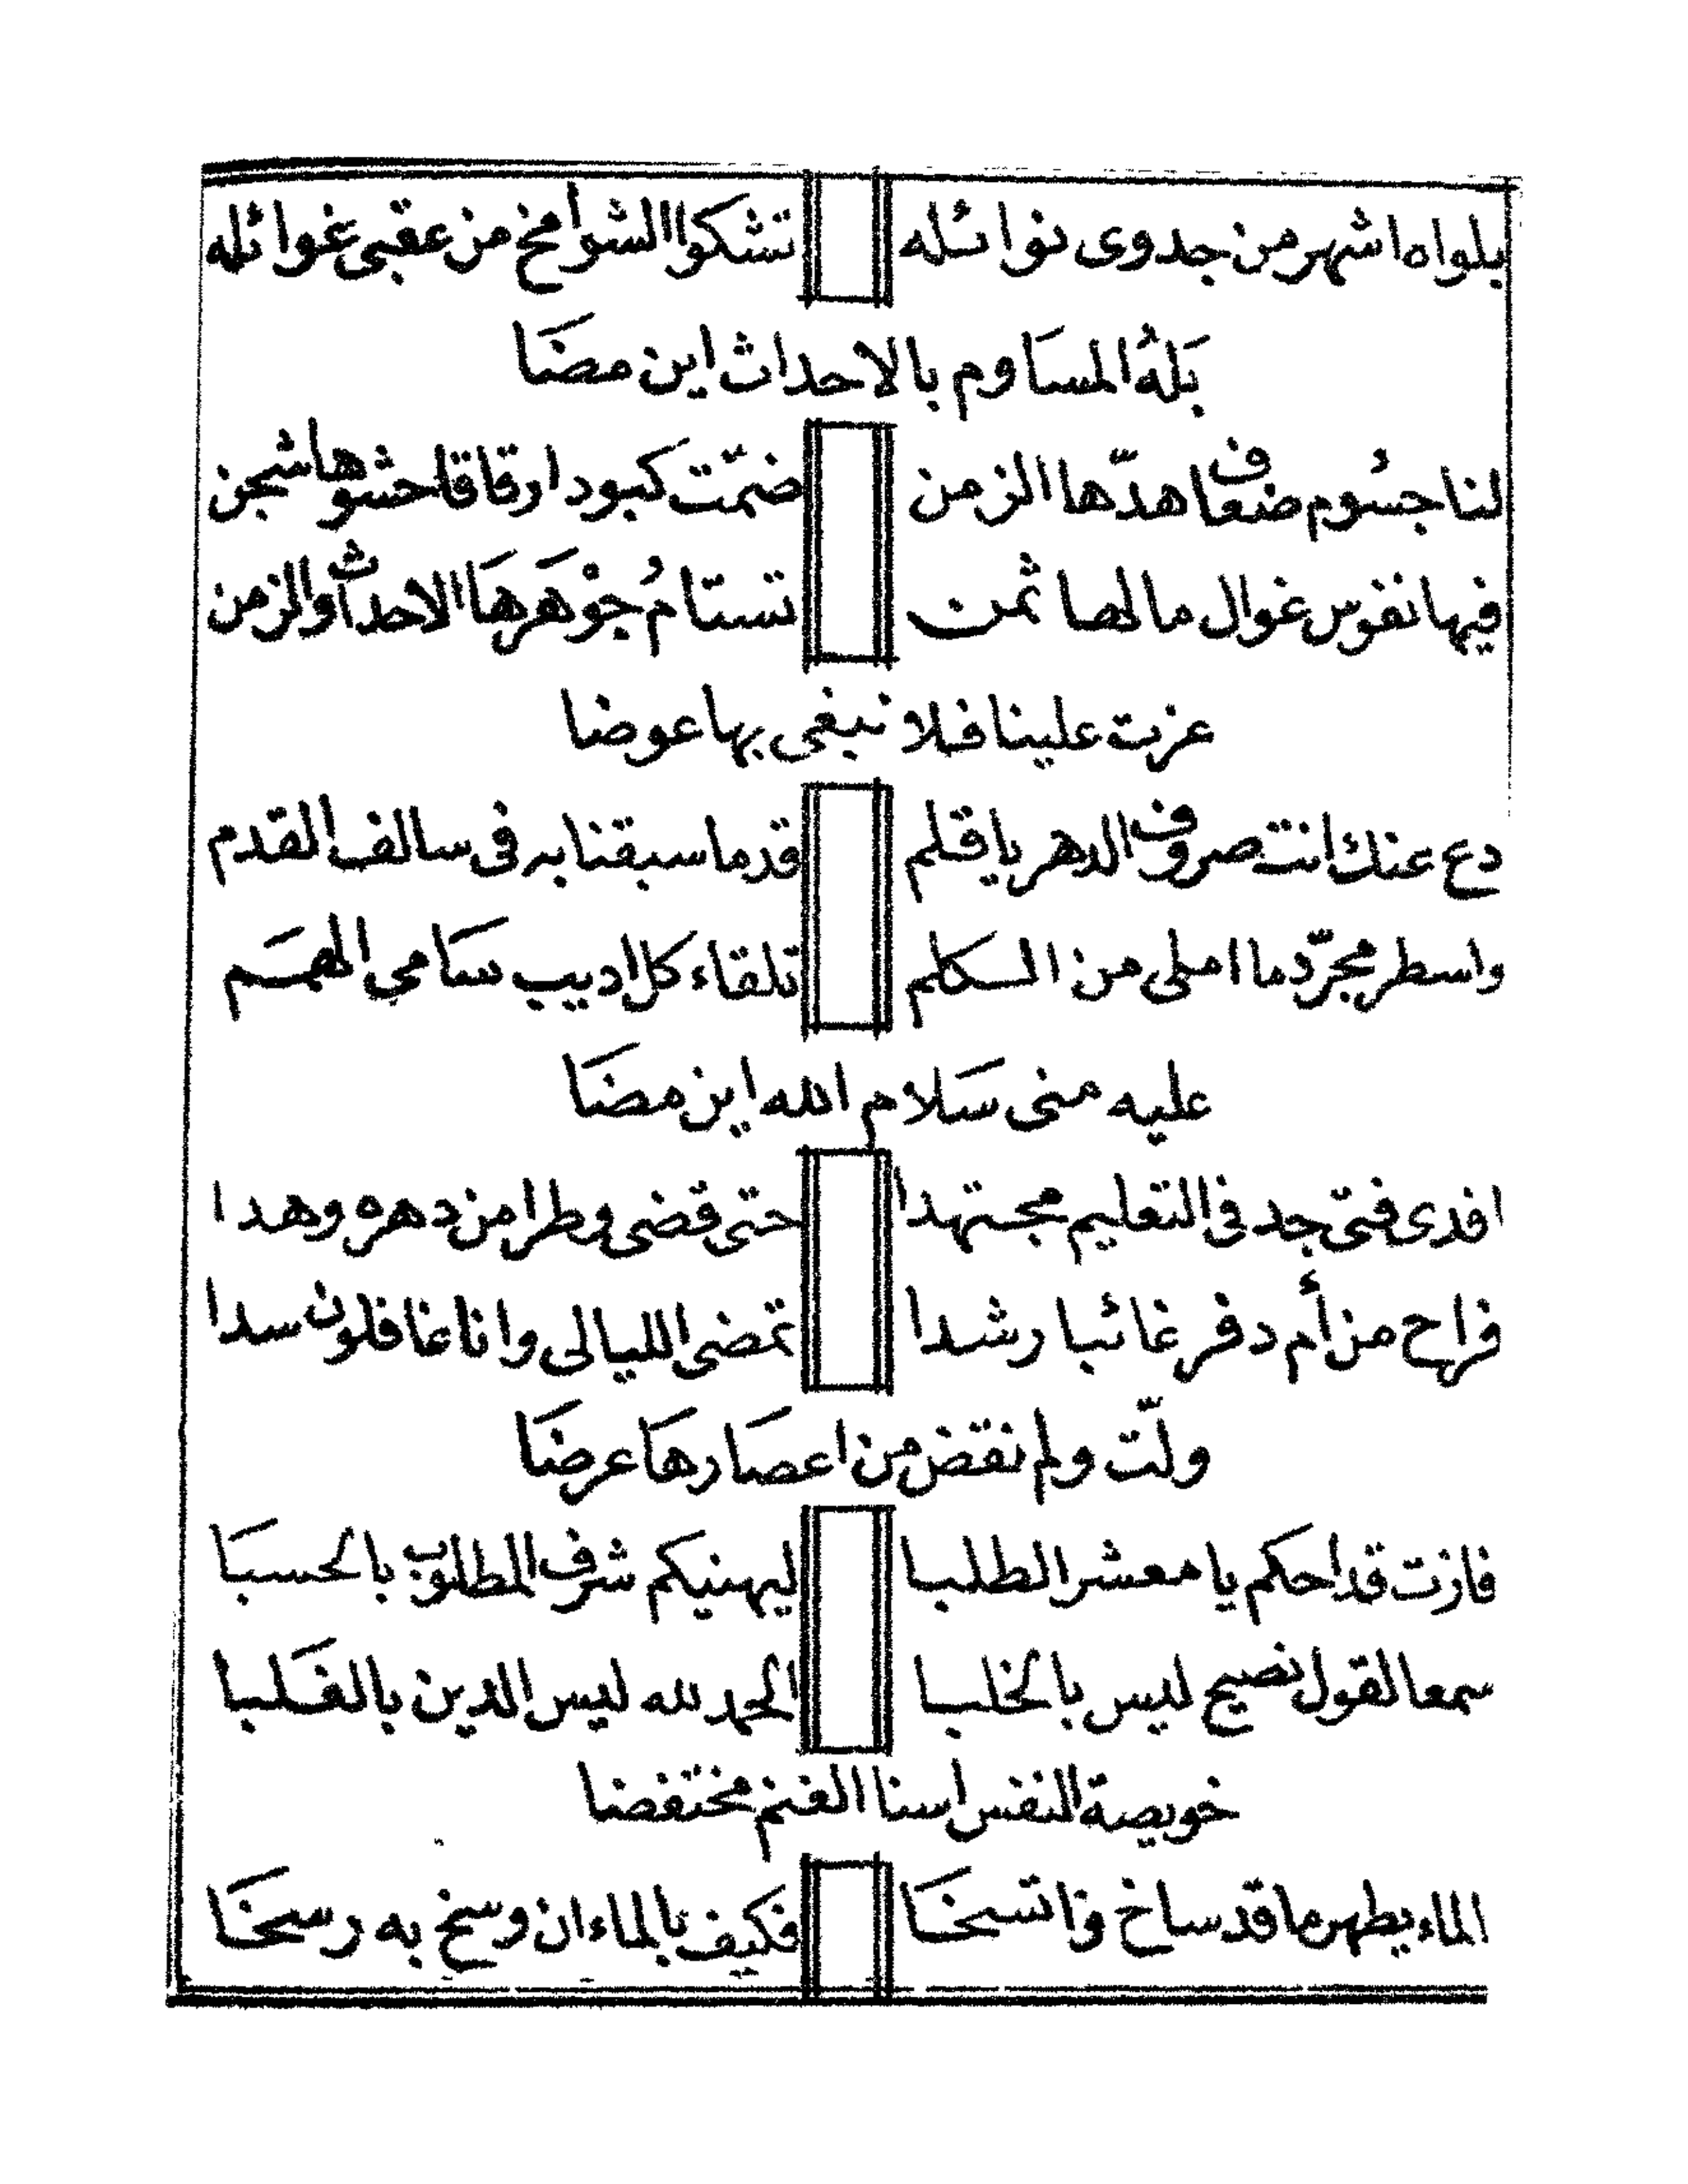 بلواه اشهر من جدوى نوائله تشكوا الشوامخ من عقبى غوائله
بَلهُ المسَاوم بالاحداث اين مضَا
لنا جسُوم ضعاف هدّها الزمن ضمّت كبودا رقاقا حشوها شجن
فيها نفوس غوال ما لها ثمن تستامُ جوْهَرهَا الاحداث والزمن
عزت علينا فلا نبغى بها عوضا
دع عنك انت صروف الدهر يا قلم قد ما سبقنا به فى سالف القدم
واسطر مجرّد ما املى من الكلم تلقاء كل اديب سَامي الهمَم
عليه منى سَلام الله اين مضَا
افدى فتى جد فى التعليم مجتهدا حتى قضى وطرا من دهره وهدا
فراح من أم دفر غائبا رشدا تمضى الليالى وانا غافلون سدا
ولّت ولم نقض من اعصَارهَا عرضَا
فازت قداحكم يا معشر الطلبا ليهنيكم شرف المطلوب بالحسبَا
سمعا لقول نصيح ليس بالخلبا الحمد لله ليس الدين بالغَلبا
خويصة النفس اسنا الغنم مختفضا
الماء يطهر ما قد ساخ واتسخَا فكيف بالماء ان وسخ به رسخَا